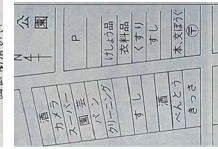 公園
N
4
P
けしょう品
衣料品
くすり
すし
本、文ぼうぐ
〒
酒
カメラ
スーパー
園芸
パン
クリーニング
すし
酒
べんとう
きっさ